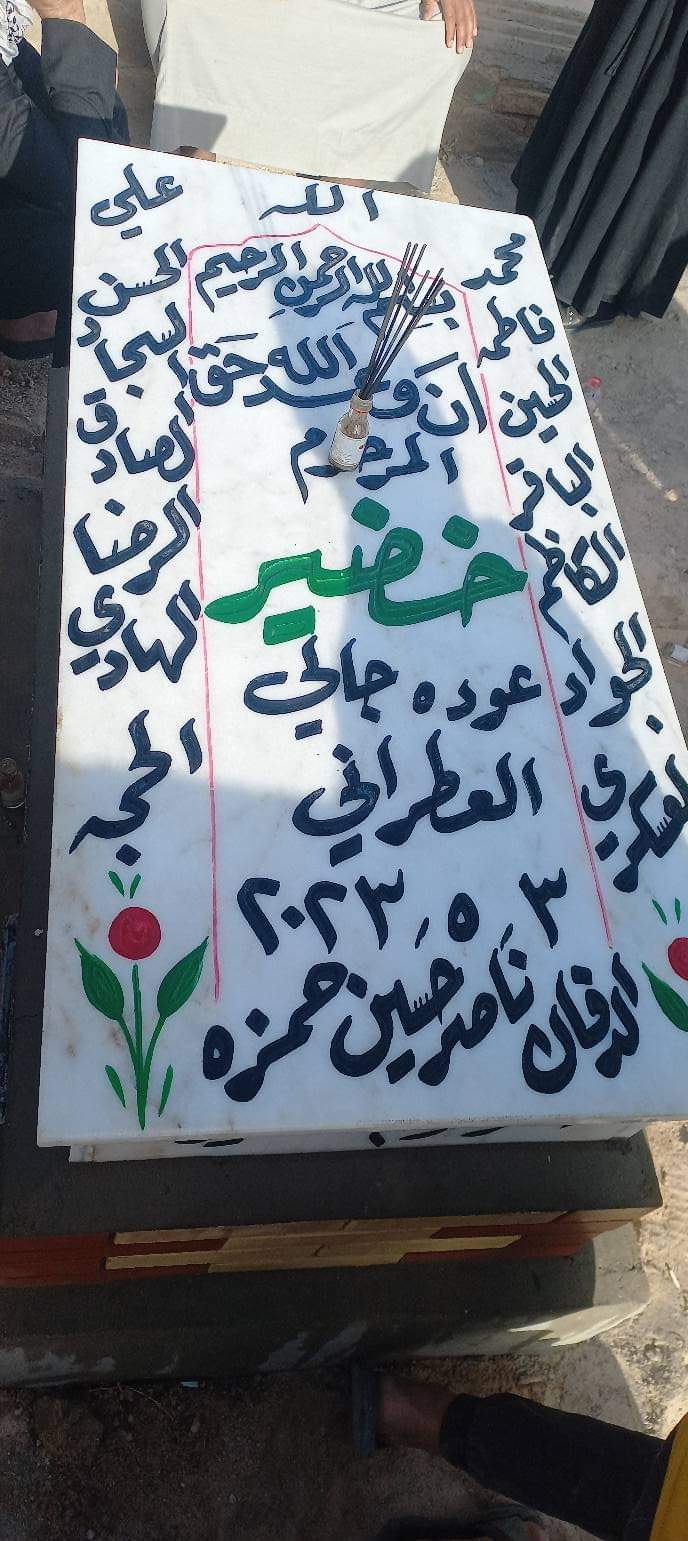 الله
محمد
علي
فاطمه
الحسن
الحسين
السجاد
الباقر
الصادق
الكاظم
الرضا
الجواد
الهادي
العسكري
الحجه
بسم الله الرحمن الرحيم
ان وعد الله حق
المرحوم
خضير
عوده جالي
العطراني
٣ ٥ ٢٠٢٣
الدفان ناصر حسين حمزه